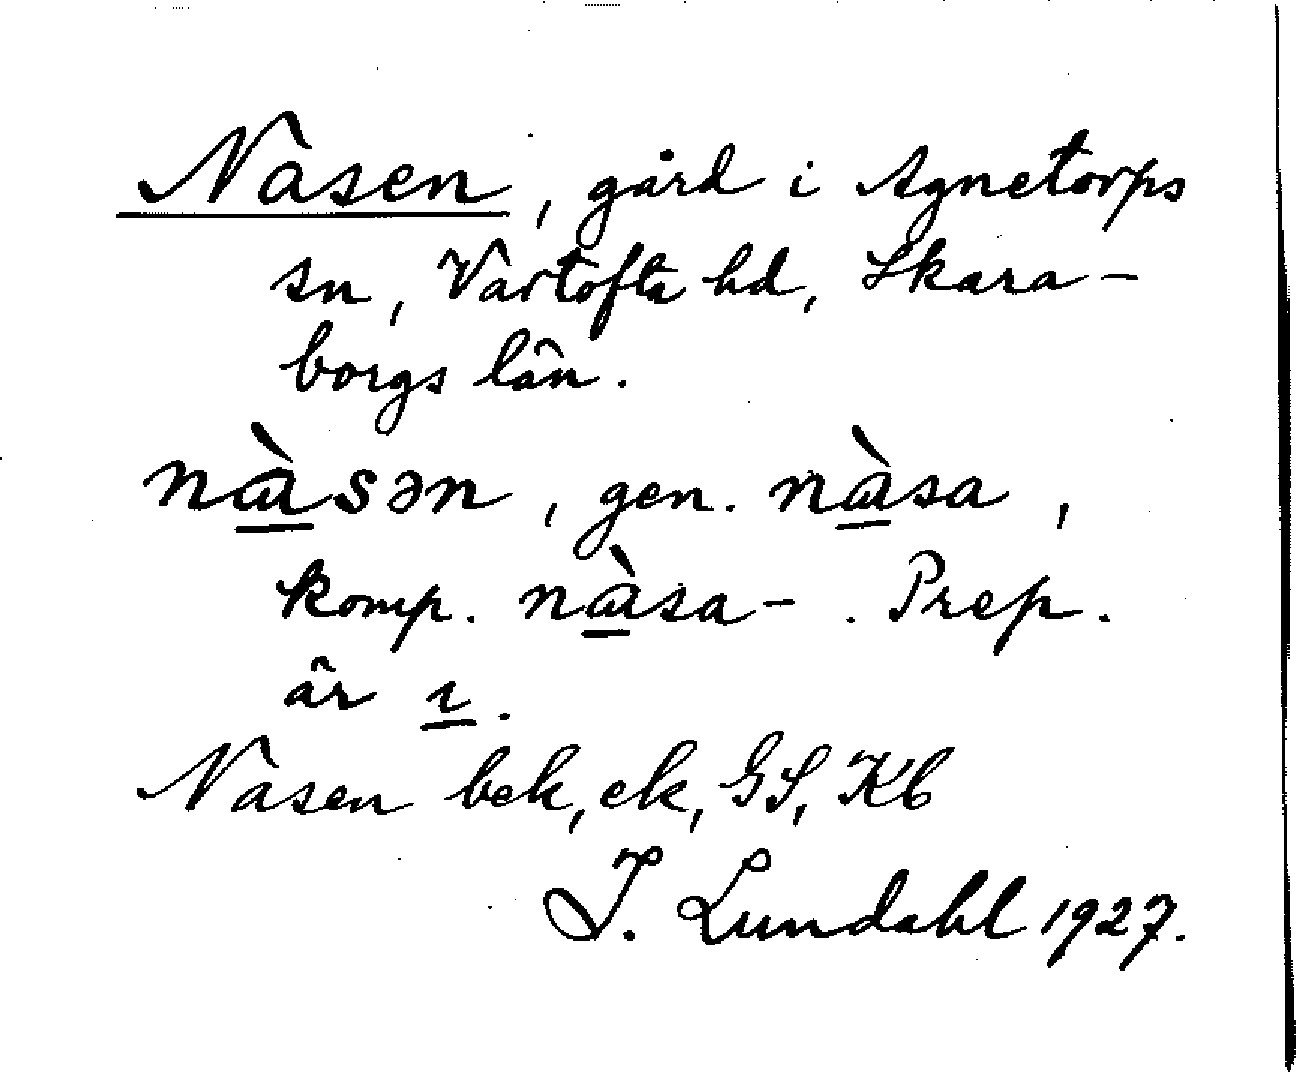 Nasen, gård i Agnetorps
sn, Vartofta hd, Skara-
borgs län.
nàsən, gen. nàsa,
komp. nàsa-. Prep.
är ɩ.
Nasen bek, ek, GS, Kb
I. Lundahl 1927.